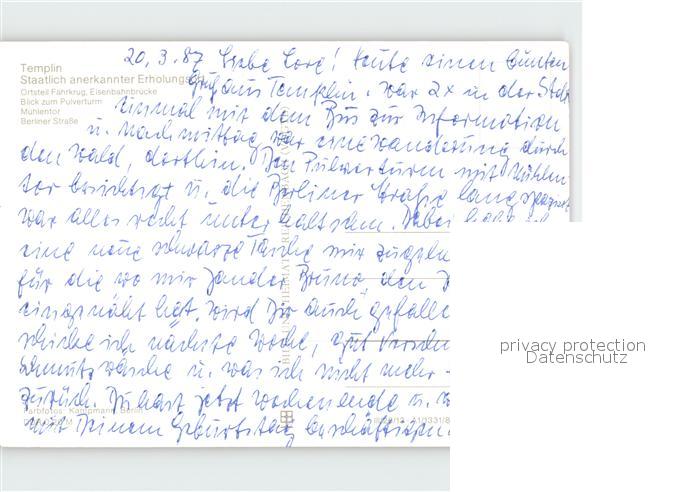 Templin
Staatlich anerkannter Erholungsort
Ortsteil Fährkrug, Eisenbahnbrücke
Blick zum Pulverturm
Mühlentor
Berliner Straße
20.3.87 Liebe Lore! Heute einen bunten
Gruß aus Templin. War 2x in der Stadt
Einmal mit dem Bus zur Information
u. Nachmittag war eine Wanderung durch
den Wald, dorthin. Den Pulverturm mit Mühlen
tor besichtigt u. die Berliner Straße lang spaziert
war alles recht unterhaltsam. Dabei habe ich
eine neue schwarze Tasche mir zugele
für die wo mir Zander Bruno den
eingenäht hat. Wird Dir auch gefalle
schicke ich nächste Woche, gut
Schmutzwäsche u. was ich nicht mehr
zurück. Du hast jetzt Wochenende u.
mit Deinem Geburtstag beschäftigen
Farbfotos: Kampmann, Berlin
privacy protection
Datenschutz